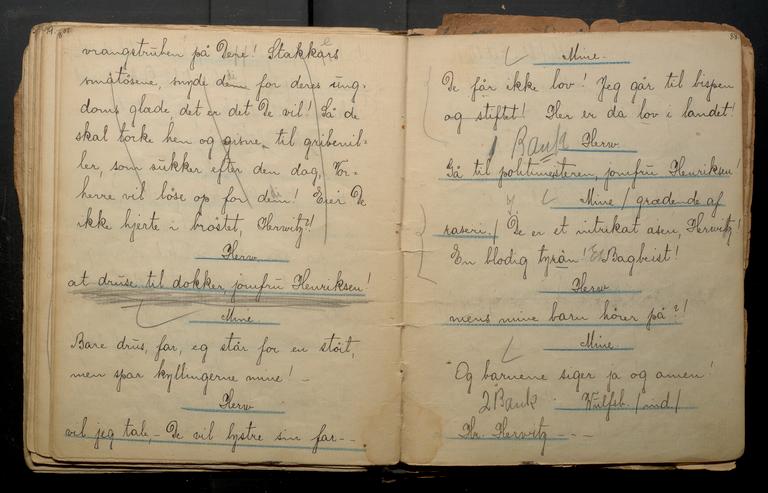 vrangstruben på Dere! Stakkars
småtøsene, snyde dem for deres ung-
doms glæde, det er det De vil! Så de
skal tørke hen og gisne til gribenil-
ler, som sukker efter den dag, Vor-
herre vil løse op for dem! Eier De
ikke hjerte i brøstet, Herwitz?!
Herw
at druse til dokker, jomfru Henriksen!
Mine.
Bare drus, far, eg står for en støit,
men spar kyllingerne mine! –
Herw
vil jeg tale, – De vil lystre sin far – –
88.
Mine.
De får ikke lov! Jeg går til bispen
og stiftet! Her er da lov i landet!
1 Bank Herw
Gå til politimesteren, jomfru Henriksen!
Mine / grædende af
raseri. / De er et intrikat asen, Herwitz!
En blodig tyran! Et Bagbeist!
Herw
mens mine barn hører på?!
Mine.
Og barnene siger ja og amen!
2 Bank Wulfsb. / ind. /
Hr. Herwitz – – –